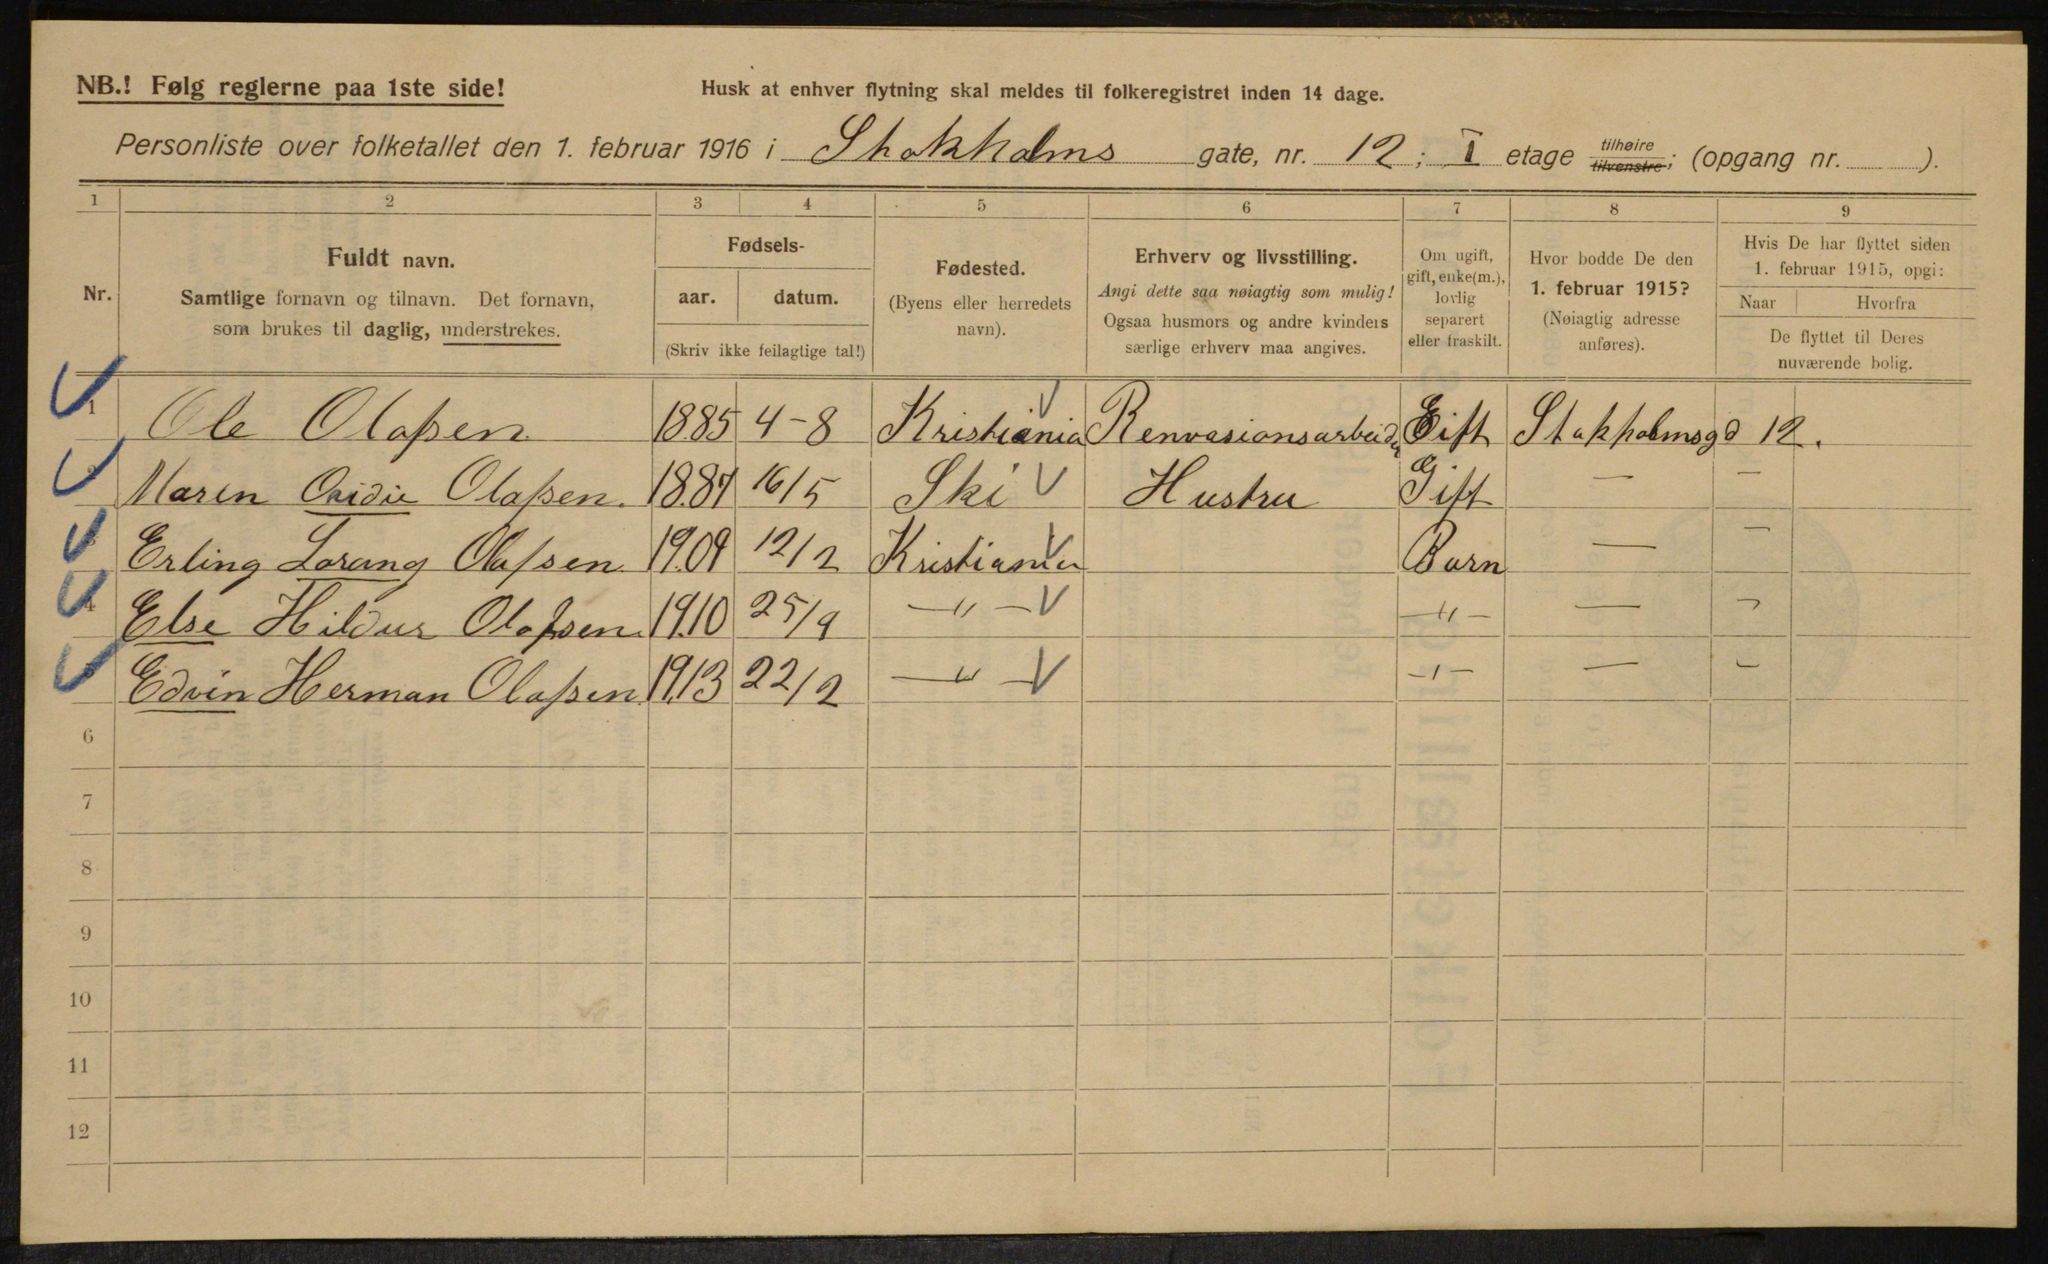 NB.! Følg reglerne paa 1ste side!
Husk at enhver flytning skal meldes til folkeregistret inden 14 dage.
Personliste over folketallet den 1. februar 1916 i Stokholms gate, nr. 12; I etage tilhøire tilvenstre; (opgang nr. ).
1 2 3 4 5 6 7 8 9
Nr.
Fuldt navn.
Samtlige fornavn og tilnavn. Det fornavn,
som brukes til daglig, understrekes.
Fødsels-
aar. datum.
(Skriv ikke feilagtige tal!)
Fødested.
(Byens eller herredets
navn).
Erhverv og livsstilling.
Angi dette saa nøiagtig som mulig!
Ogsaa husmors og andre kvinders
særlige erhverv maa angives.
Om ugift,
gift, enke(m.),
lovlig
separert
eller fraskilt.
Hvor bodde De den
1. februar 1915?
(Nøiagtig adresse
anføres).
Hvis De har flyttet siden
1. februar 1915, opgi:
Naar Hvorfra
De flyttet til Deres
nuværende bolig.
1 Ole Olafsen 1885 4-8 Kristiania Renvasionsarbeider Gift Stokholmsgd 12.
2 Maren Ovidie Olafsen. 1887 16/5 Ski Hustru Gift — —
3 Erling Lorang Olafsen 1909 12/2 Kristiania Barn — —
4 Else Hildur Olafsen. 1910 25/9 —"— —"— — —
5 Edvin Herman Olafsen 1913 22/2 —"— —"— — —
6
7
8
9
10
11
12